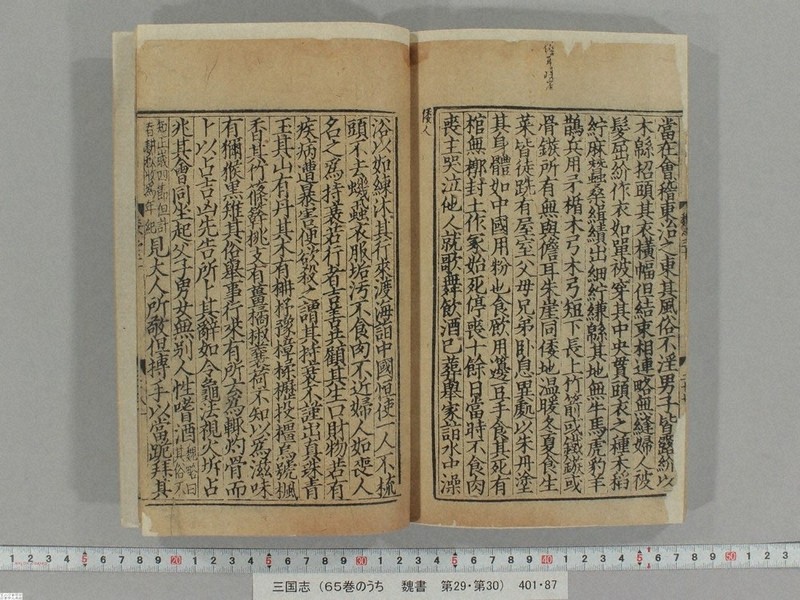 當在會稽東冶之東其風俗不淫男子皆露紒以
木緜招頭其衣橫幅但結束相連略無縫婦人被
髮屈紒作衣如單被穿其中央貫頭衣之種禾稻
紵麻蠶桑緝績出細紵縑緜其地無牛馬虎豹羊
鵲兵用矛楯木弓木弓短下長上竹箭或鐵鏃或
骨鏃所有無與儋耳朱崖同倭地温暖冬夏食生
菜皆徒跣有屋室父母兄弟卧息異處以朱丹塗
其身體如中國用粉也食飲用籩豆手食其死有
棺無槨封土作冢始死停喪十餘日當時不食肉
喪主哭泣他人就歌舞飲酒已葬舉家詣水中澡
倭人
浴以如練沐其行來渡海詣中國恒使一人不梳
頭不去蟣蝨衣服垢污不食肉不近婦人如喪人
名之爲持衰若行者吉善共顧其生口財物若有
疾病遭暴害便欲殺之謂其持衰不謹出真珠青
玉其山有丹其木有柟杼豫樟楺櫪投橿烏號楓
香其竹篠簳桃支有薑橘椒蘘荷不知以爲滋味
有獮猴黑雉其俗舉事行來有所云爲輒灼骨而
卜以占吉凶先告所卜其辭如令龜法視火坼占
兆其會同坐起父子男女無别人性嗜酒魏略曰其俗不
知正歲四節但計春耕秋收爲年紀見大人所敬但搏手以當跪拜其
三国志 （65巻のうち 魏書 第29・第30） 401・87